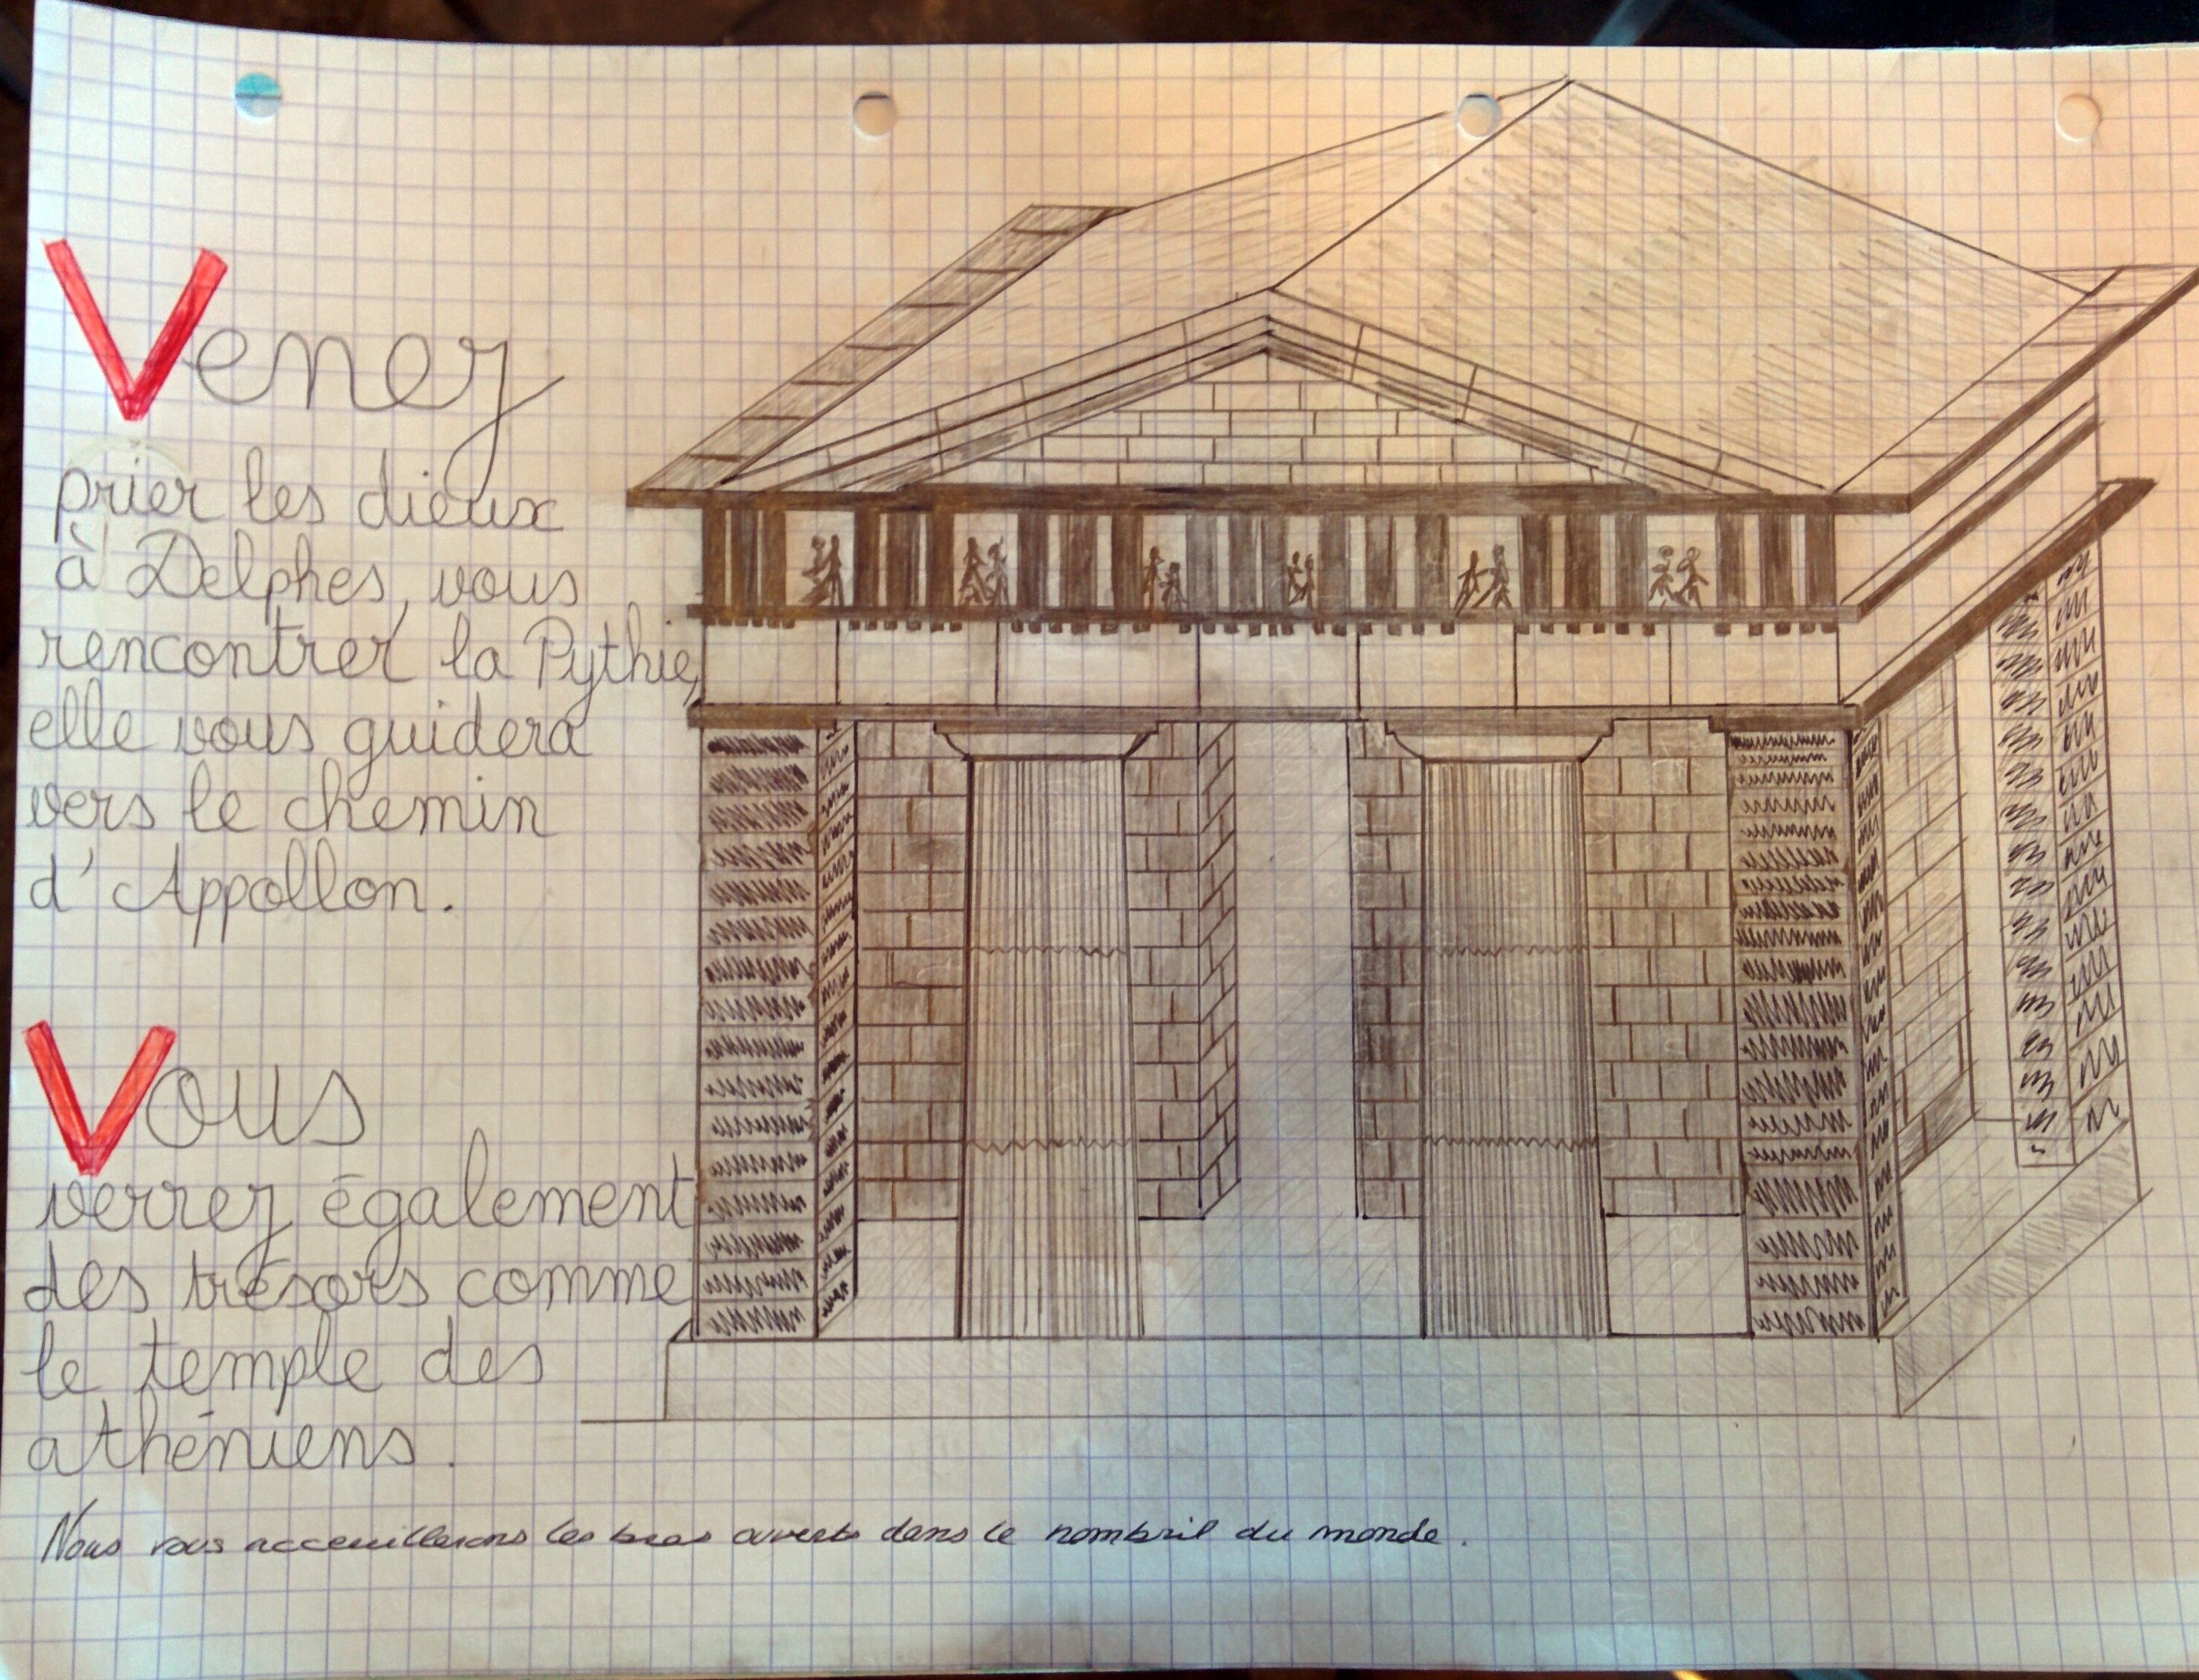 Venez
prier les dieux
à Delphes, vous
rencontrer la Pythie,
elle vous guidera
vers le chemin
d'Appollon.
Vous
verrez également
des trésors comme
le temple des
athéniens.
Nous vous acceuillerons les bras ouverts dans le nombril du monde.